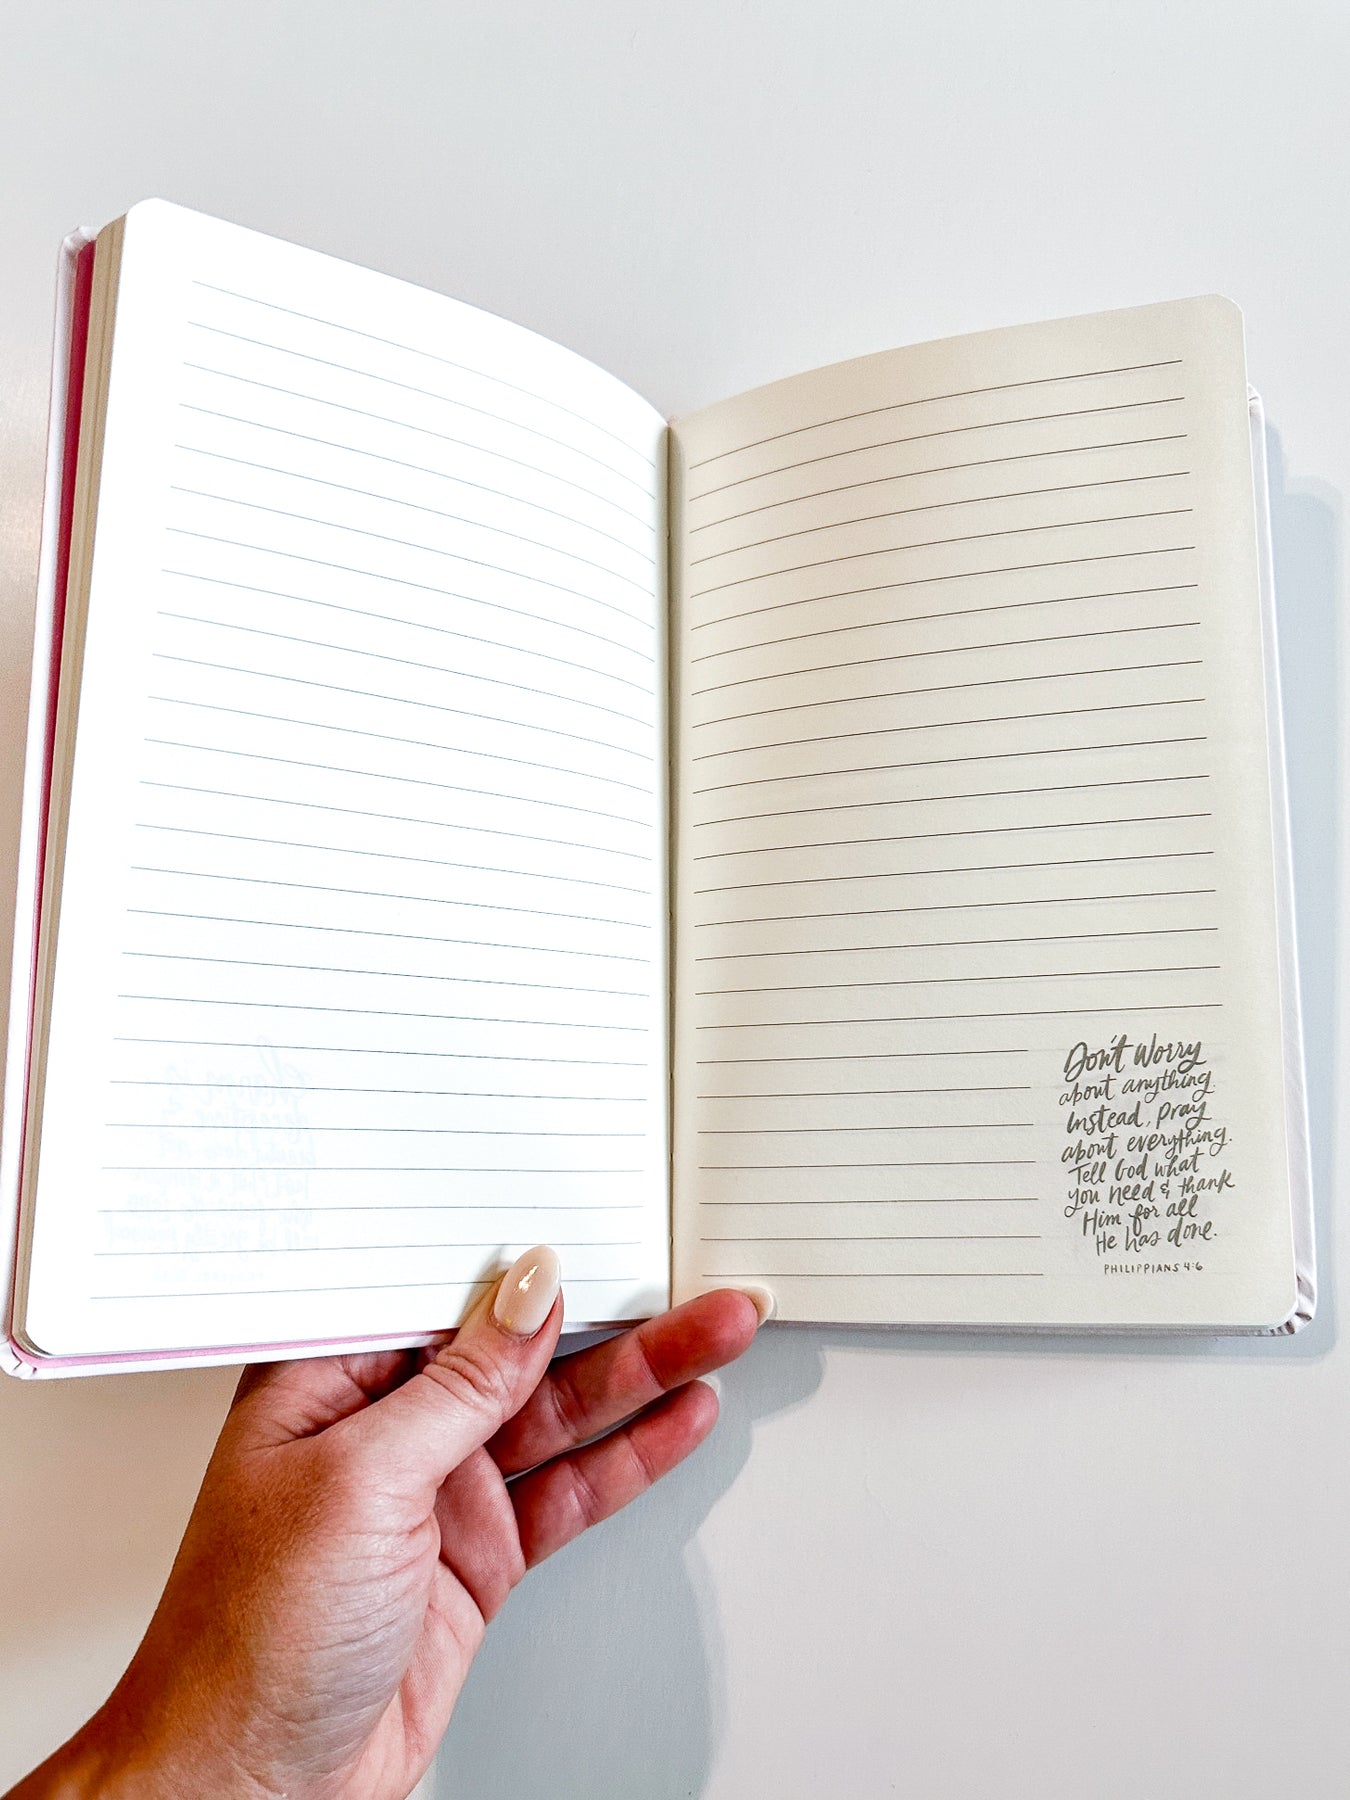 Don't Worry
about anything.
Instead, pray
about everything.
Tell God what
you need & thank
Him for all
He has done.
PHILIPPIANS 4:6